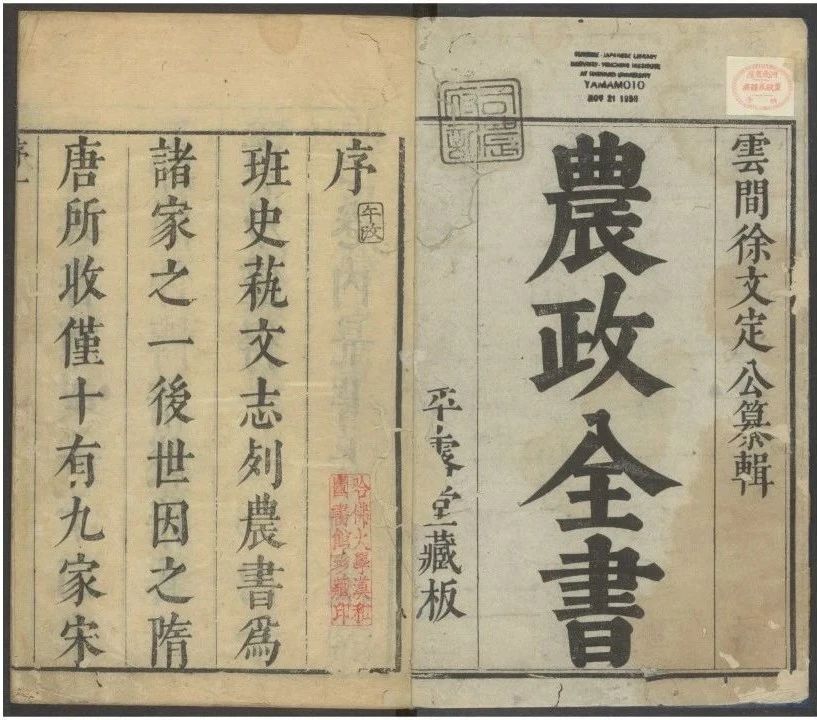 CHINESE-JAPANESE LIBRARY
HARVARD-YENCHING INSTITUTE
AT HARVARD UNIVERSITY
YAMAMOTO
NOV 21 1950
雲間徐文定公纂輯
農政全書
平露堂藏板
序
班史蓺文志列農書爲
諸家之一後世因之隋
唐所收僅十有九家宋
哈佛大學漢和
圖書館珍藏印
序一